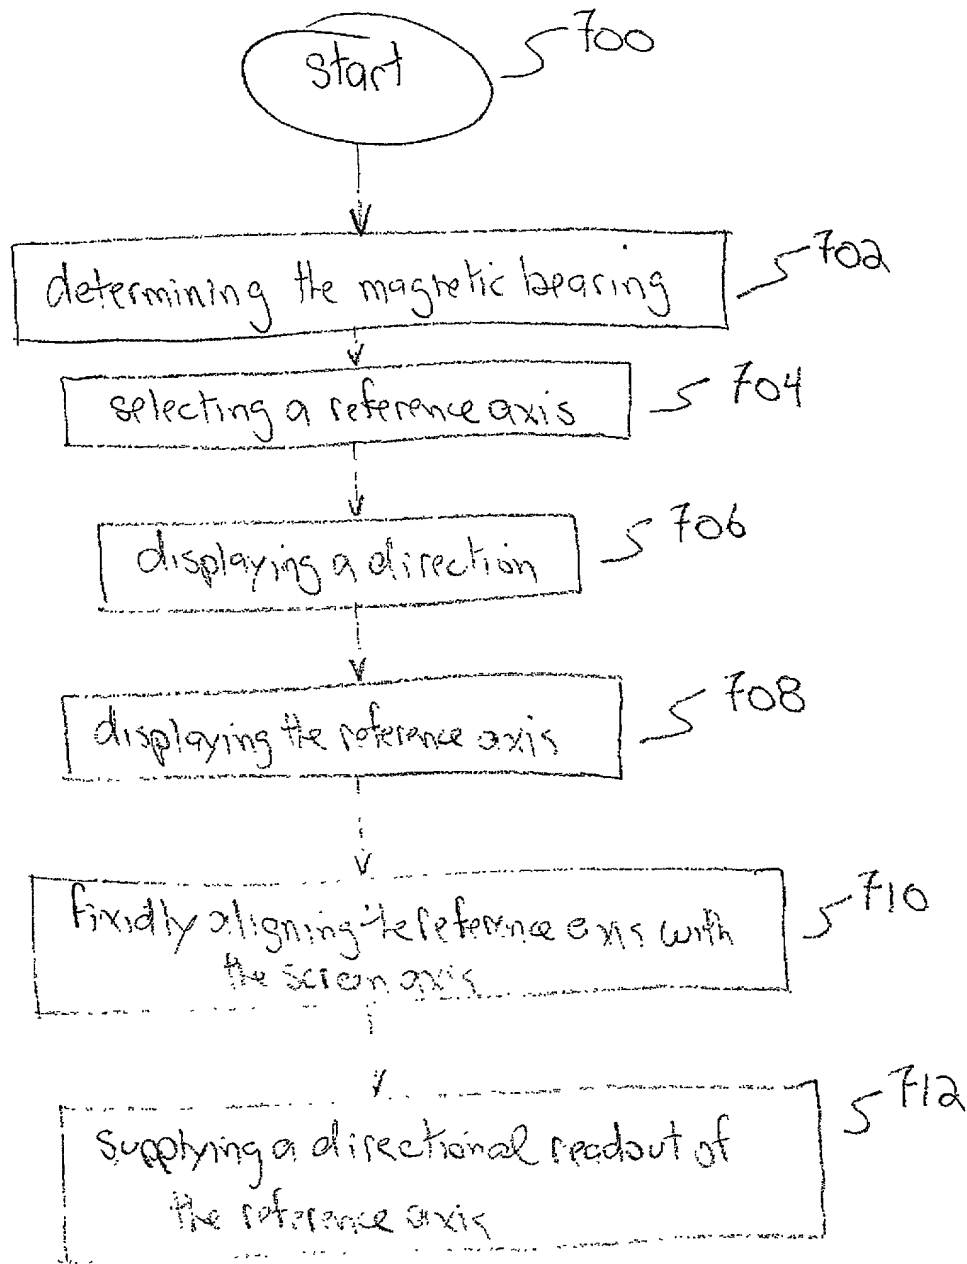 start
700
determining the magnetic bearing
702
selecting a reference axis
704
displaying a direction
706
displaying the reference axis
708
fixidly aligning the reference axis with
the screen axis
710
supplying a directional readout of
the reference axis
712